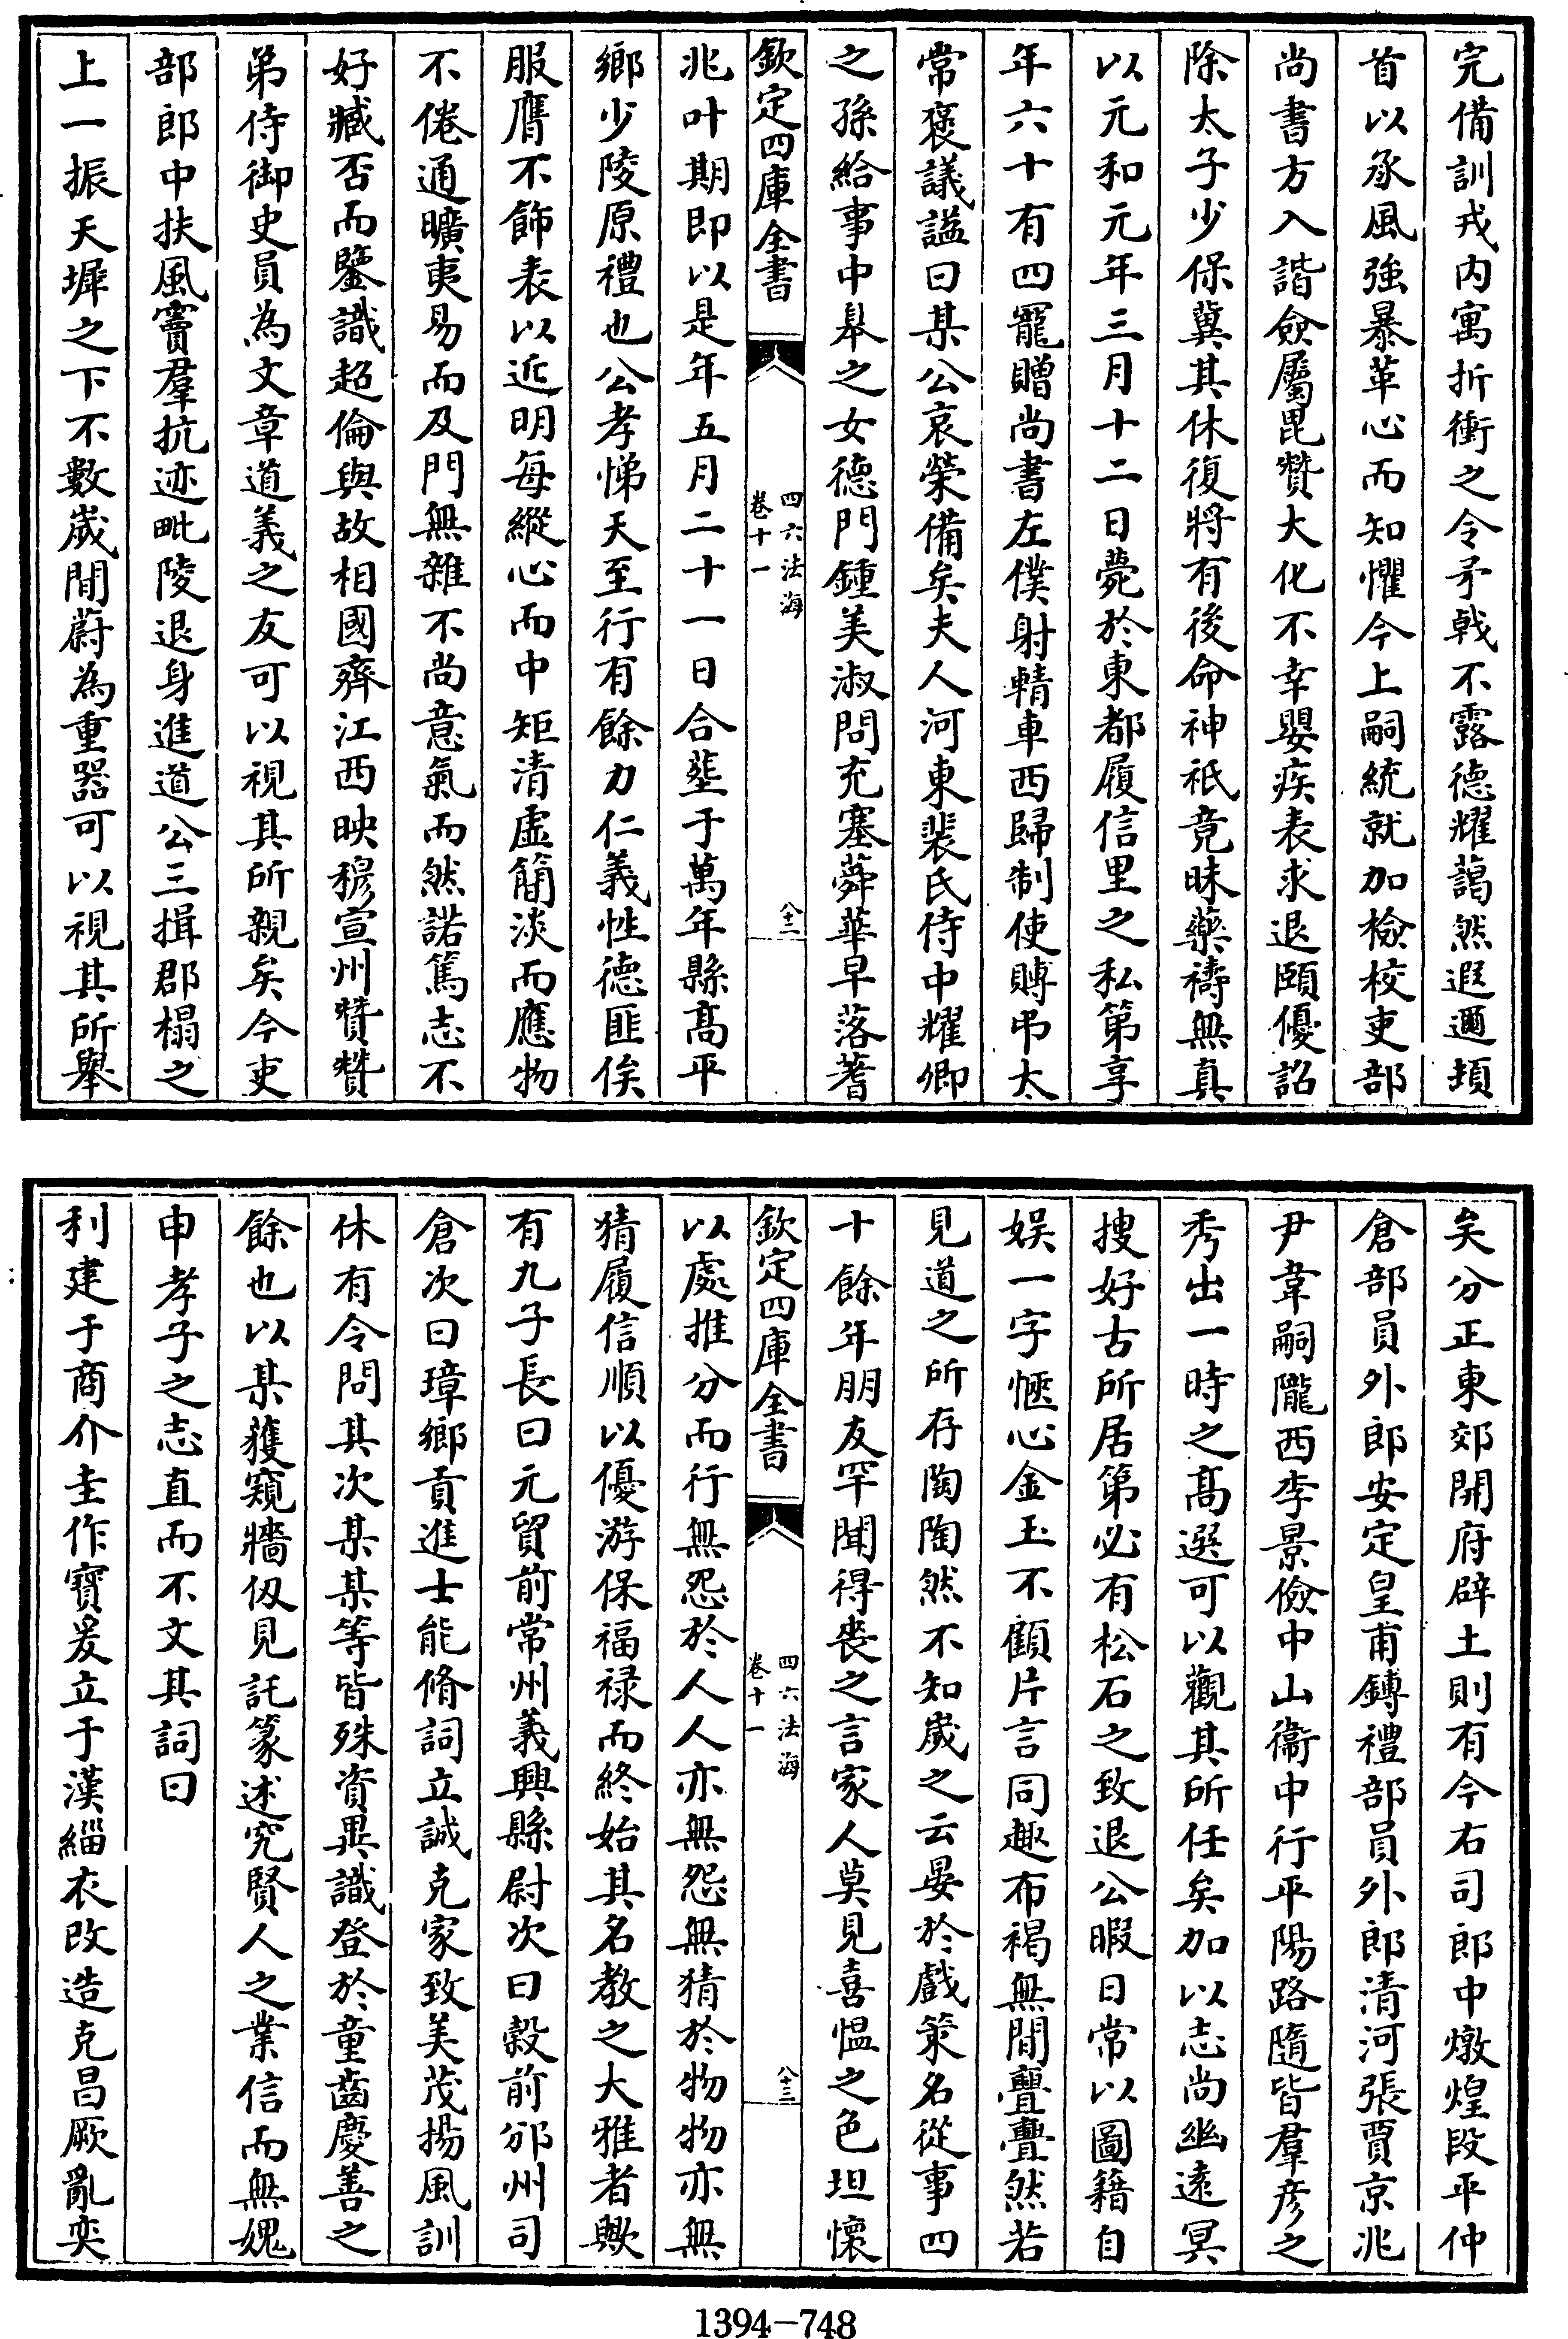 完備訓戎内寓折衝之令矛戟不露德耀藹然遐邇頃
首以承風強暴革心而知懼今上嗣統就加檢校吏部
尚書方入諧僉屬毘贊大化不幸嬰疾表求退頤優詔
除太子少保冀其休復將有後命神祇竟昧藥禱無真
以元和元年三月十二日薨於東都履信里之私第享
年六十有四寵贈尚書左僕射輤車西歸制使賻弔太
常褒議諡曰某公哀榮備矣夫人河東裴氏侍中耀卿
之孫給事中臯之女德門鍾美淑問充塞蕣華早落蓍
欽定四庫全書
四六法海
卷十一
八十二
兆叶期即以是年五月二十一日合塟于萬年縣髙平
鄉少陵原禮也公孝悌天至行有餘力仁義性德匪俟
服膺不飾表以近明每縱心而中矩清虛簡淡而應物
不倦通曠夷易而及門無雜不尚意氣而然諾篤志不
好臧否而鑒識超倫與故相國齊江西映穆宣州贊贊
弟侍御史員為文章道義之友可以視其所親矣今吏
部郎中扶風竇羣抗迹毗陵退身進道公三揖郡榻之
上一振天墀之下不數歲間蔚為重器可以視其所舉
矣分正東郊開府辟土則有今右司郎中燉煌段平仲
倉部員外郎安定皇甫鎛禮部員外郎清河張賈京兆
尹韋嗣隴西李景儉中山衛中行平陽路隨皆羣彦之
秀出一時之髙選可以觀其所任矣加以志尚幽遠冥
搜好古所居第必有松石之致退公暇日常以圖籍自
娱一字愜心金玉不顧片言同趣布褐無間亹亹然若
見道之所存陶陶然不知嵗之云晏於戲䇿名從事四
十餘年朋友罕聞得喪之言家人莫見喜愠之色坦懷
欽定四庫全書
四六法海
卷十一
八十三
以處推分而行無怨於人人亦無怨無猜於物物亦無
猜履信順以優游保福禄而終始其名教之大雅者歟
有九子長曰元貿前常州義興縣尉次曰榖前邠州司
倉次曰璋鄉貢進士能脩詞立誠克家致美茂揚風訓
休有令問其次某某等皆殊資異識登於童齒慶善之
餘也以某獲窺牆仭見託篆述究賢人之業信而無媿
申孝子之志直而不文其詞曰
利建于商介圭作寶爰立于漢緇衣改造克昌厥亂奕
1394-748